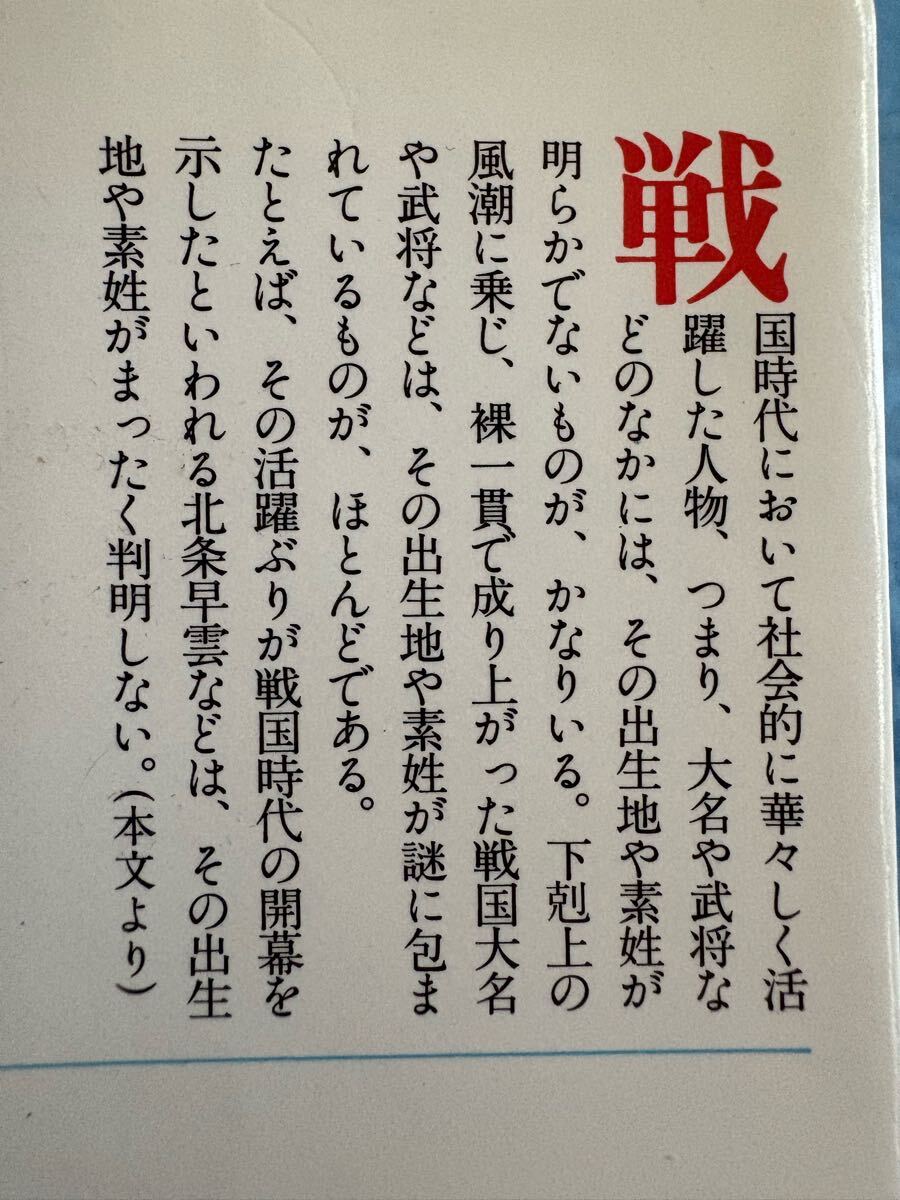 戦
国時代において社会的に華々しく活
躍した人物、つまり、大名や武将な
どのなかには、その出生地や素姓が
明らかでないものが、かなりいる。下剋上の
風潮に乗じ、裸一貫で成り上がった戦国大名
や武将などは、その出生地や素姓が謎に包ま
れているものが、ほとんどである。
たとえば、その活躍ぶりが戦国時代の開幕を
示したといわれる北条早雲などは、その出生
地や素姓がまったく判明しない。(本文より)